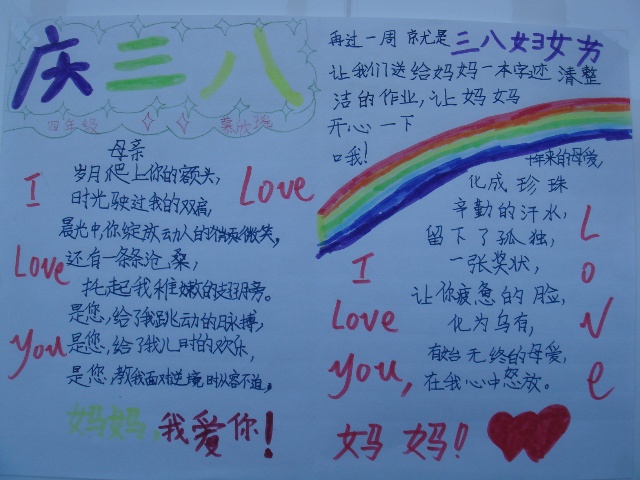 庆三八
四年级
母亲
岁月爬上你的额头,
时光驶过我的双肩,
晨光中,你绽放动人的微笑,
还有一条条沧桑,
托起我稚嫩的翅膀。
是您,给了我跳动的脉搏,
是您,给了我儿时的欢乐,
是您,教我面对逆境时从容不迫。
I
Love
Love
You
妈妈,我爱你!
再过一周 就是三八妇女节
让我们送给妈妈一本字迹 清整
洁的作业,让妈妈
开心一下
口我!
十年来的母爱,
化成珍珠
辛勤的汗水,
留下了孤独,
一张奖状,
让你疲惫的脸,
化为乌有,
有始无终的母爱,
在我心中怒放。
I
Love
You,
Love
妈妈!